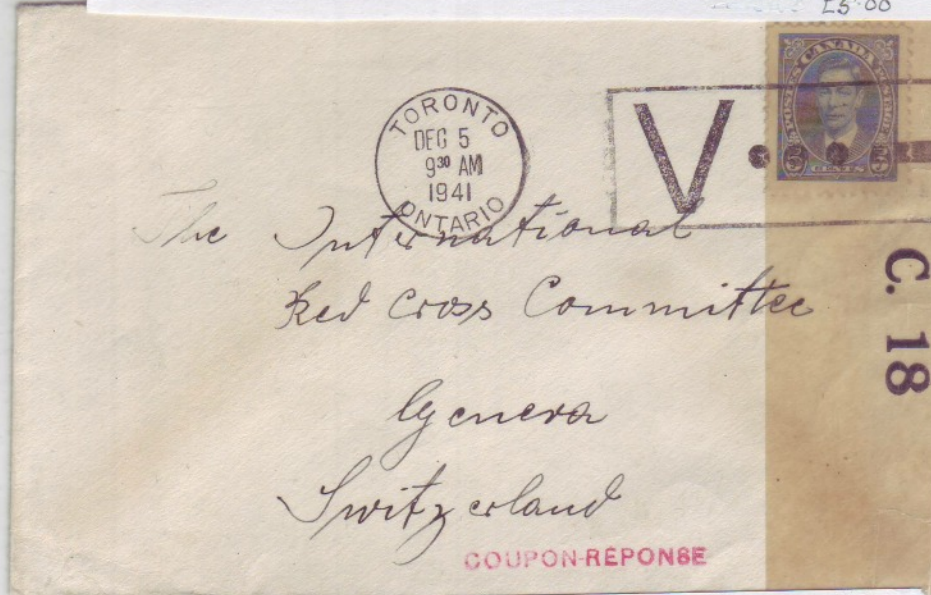 £5.00
TORONTO
DEC 5
9³⁰ AM
1941
ONTARIO
V...—
POSTES CANADA POSTAGE
3 CENTS 3
C. 18
The International
Red Cross Committee
Geneva
Switzerland
COUPON-RÉPONSE